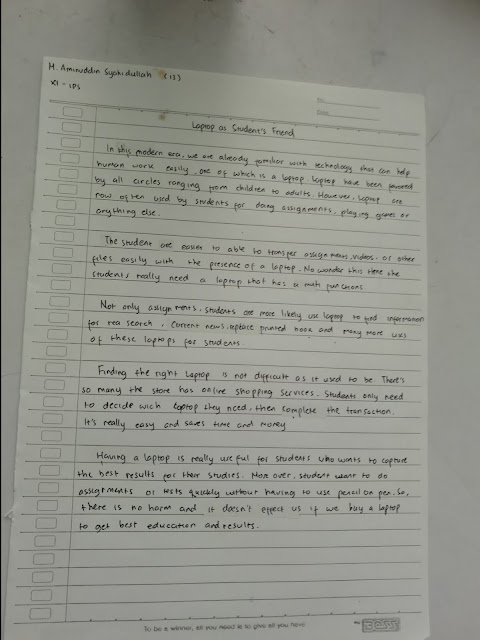 M. Aminuddin Syahidullah (15)
XI - IPS
No
Date
Laptop as Student's Friend
In this modern era, we are already familiar with technology that can help
human work easily, one of which is a laptop. Laptop have been favored
by all circles ranging from children to adults. However, laptop are
now often used by students for doing assignments, playing games or
anything else.
The student are easier to able to transfer assignments, videos, or other
files easily with the presence of a laptop. No wonder this time the
students really need a laptop that has a multi functions.
Not only assignments, students are more likely use laptop to find information
for rea search, current news, replace printed book and many more uses
of these laptops for students.
Finding the right laptop is not difficult as it used to be There's
so many the store has online shopping services. Students only need
to decide wich laptop they need, then complete the transaction.
It's really easy and saves time and money
Having a laptop is really useful for students who wants to capture
the best results for their studies. More over, student want to do
assignments or tests quickly without having to use pencil on pen. So,
there is no harm and it doesn't effect us if we buy a laptop
to get best education and results.
To be a winner, all you need is to give all you have